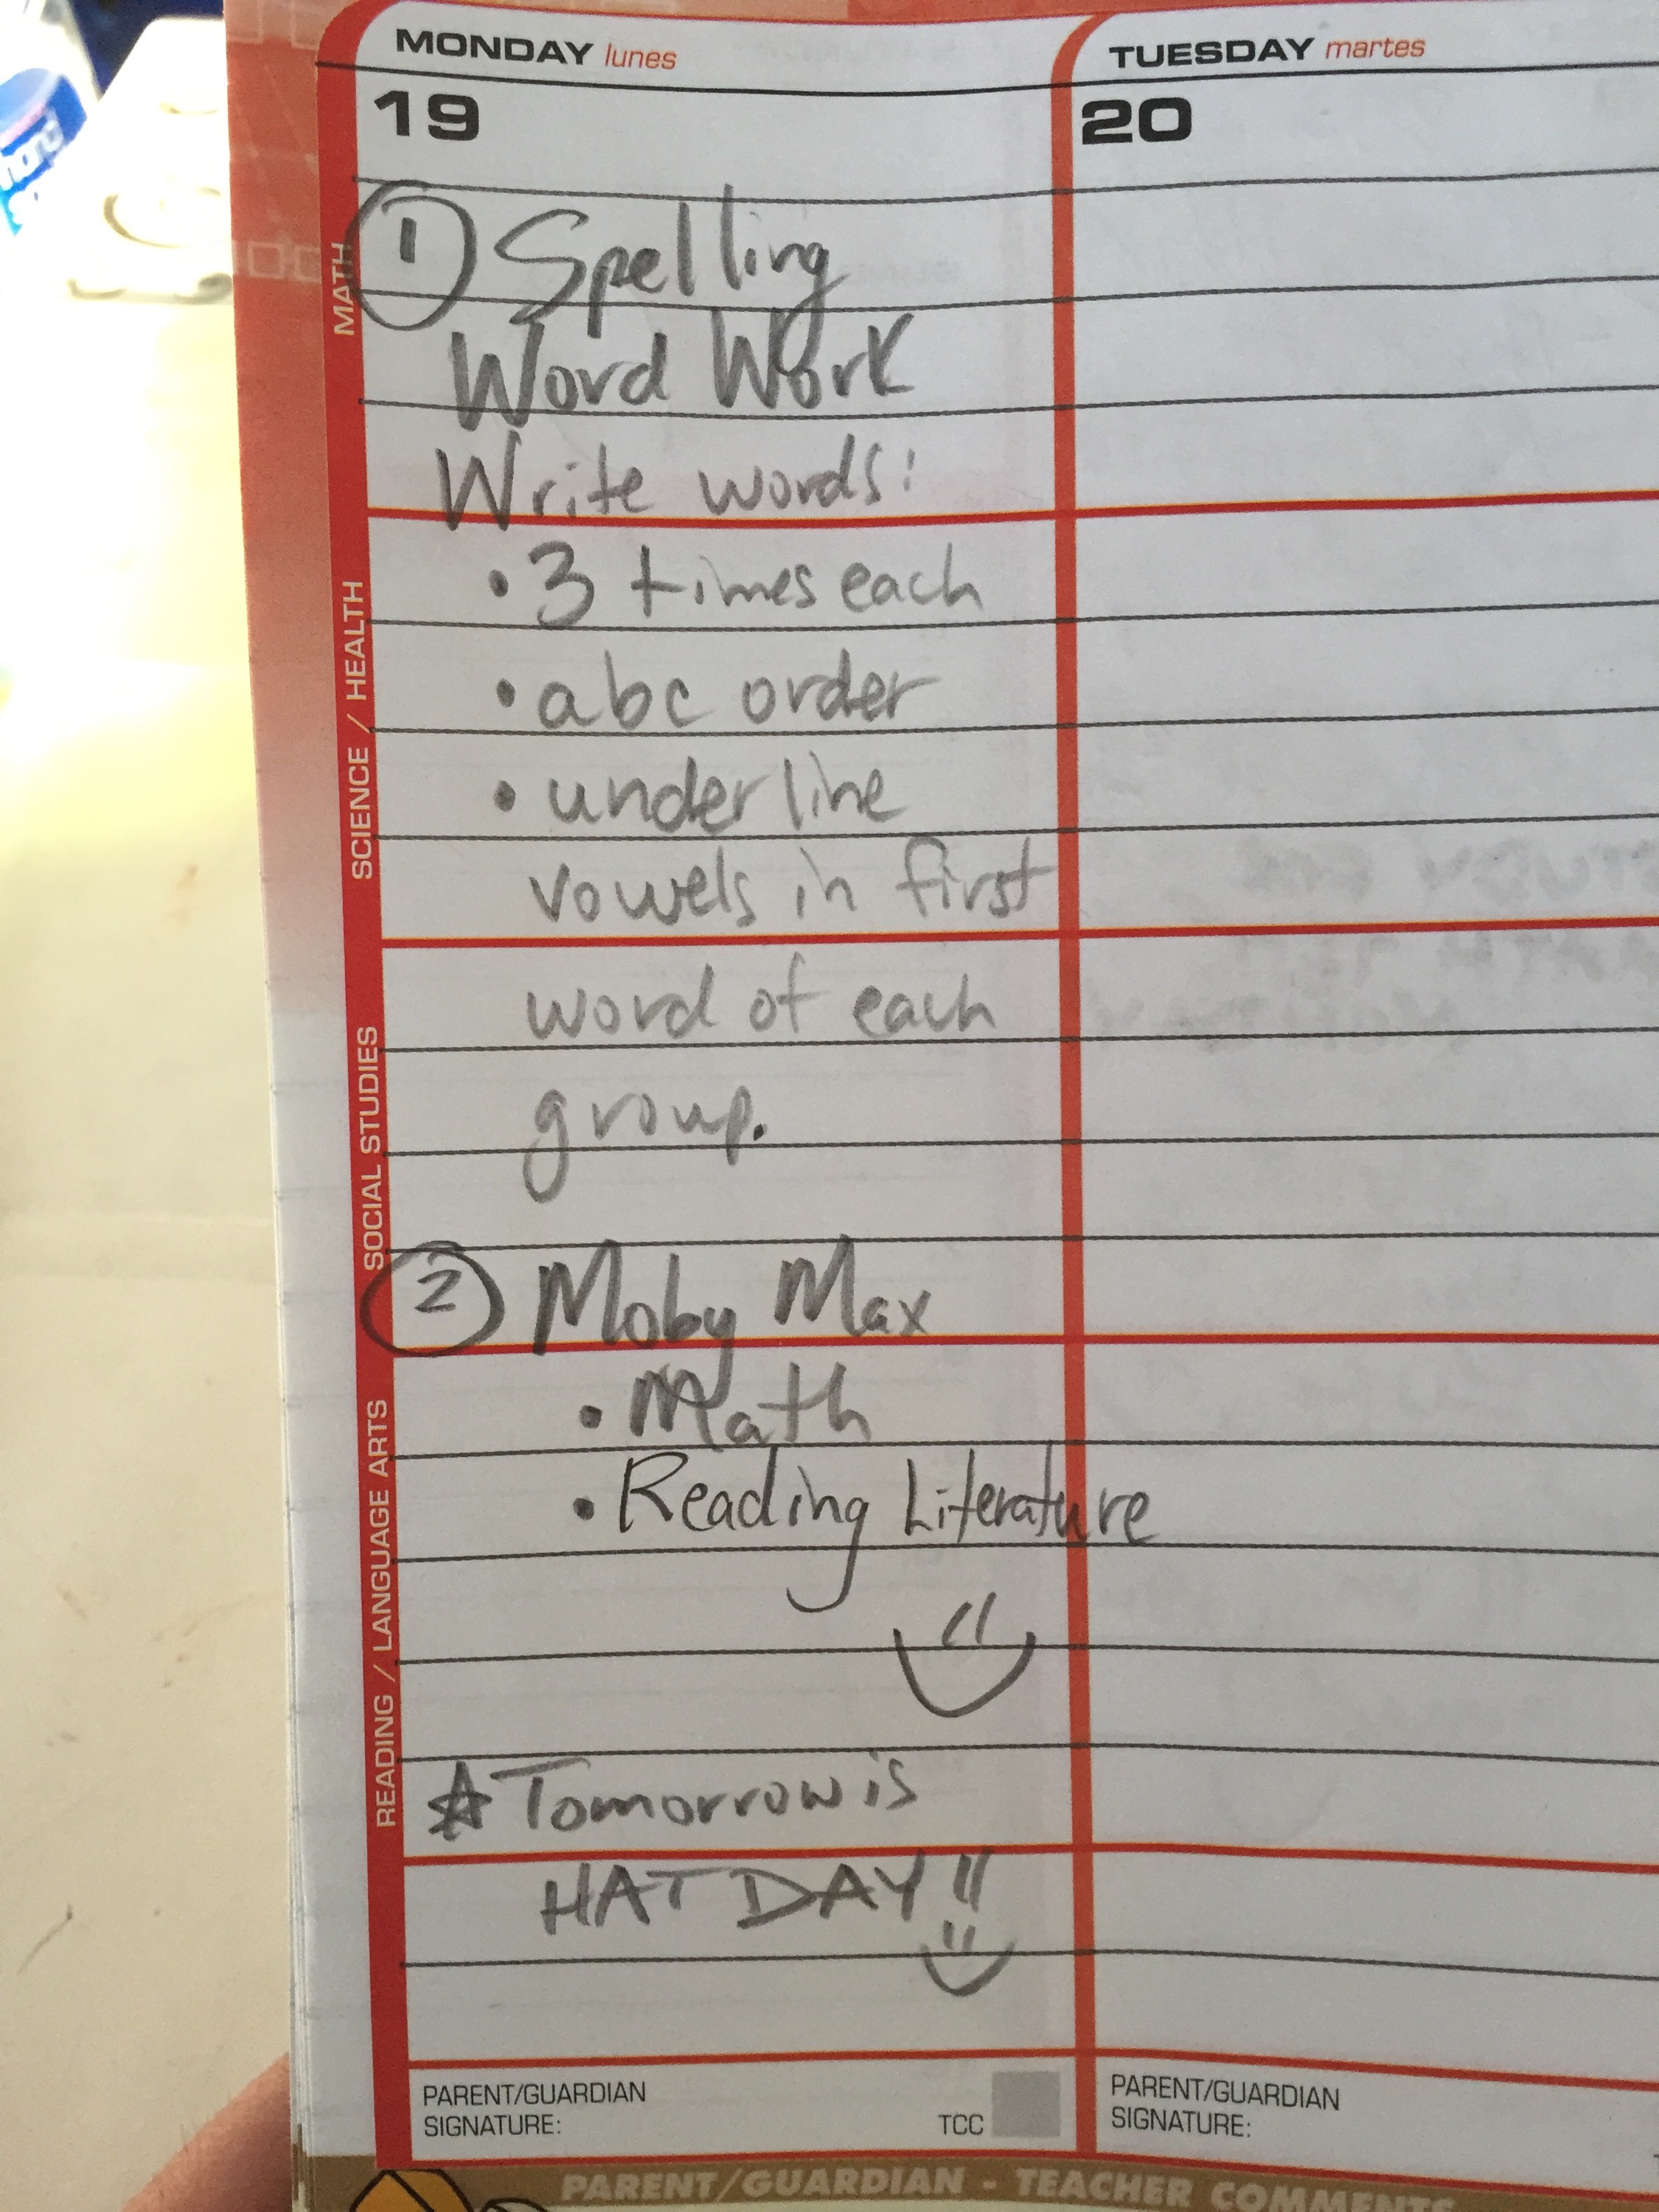 MONDAY lunes
TUESDAY martes
19
20
MATH
1 Spelling
Word Work
Write words:
SCIENCE / HEALTH
• 3 times each
• abc order
• underline
vowels in first
SOCIAL STUDIES
word of each
group.
2 Moby Max
READING / LANGUAGE ARTS
• Math
• Reading Literature
☆ Tomorrow is
HAT DAY!!
PARENT/GUARDIAN
SIGNATURE:
TCC
PARENT/GUARDIAN
SIGNATURE:
PARENT/GUARDIAN - TEACHER COMMENTS